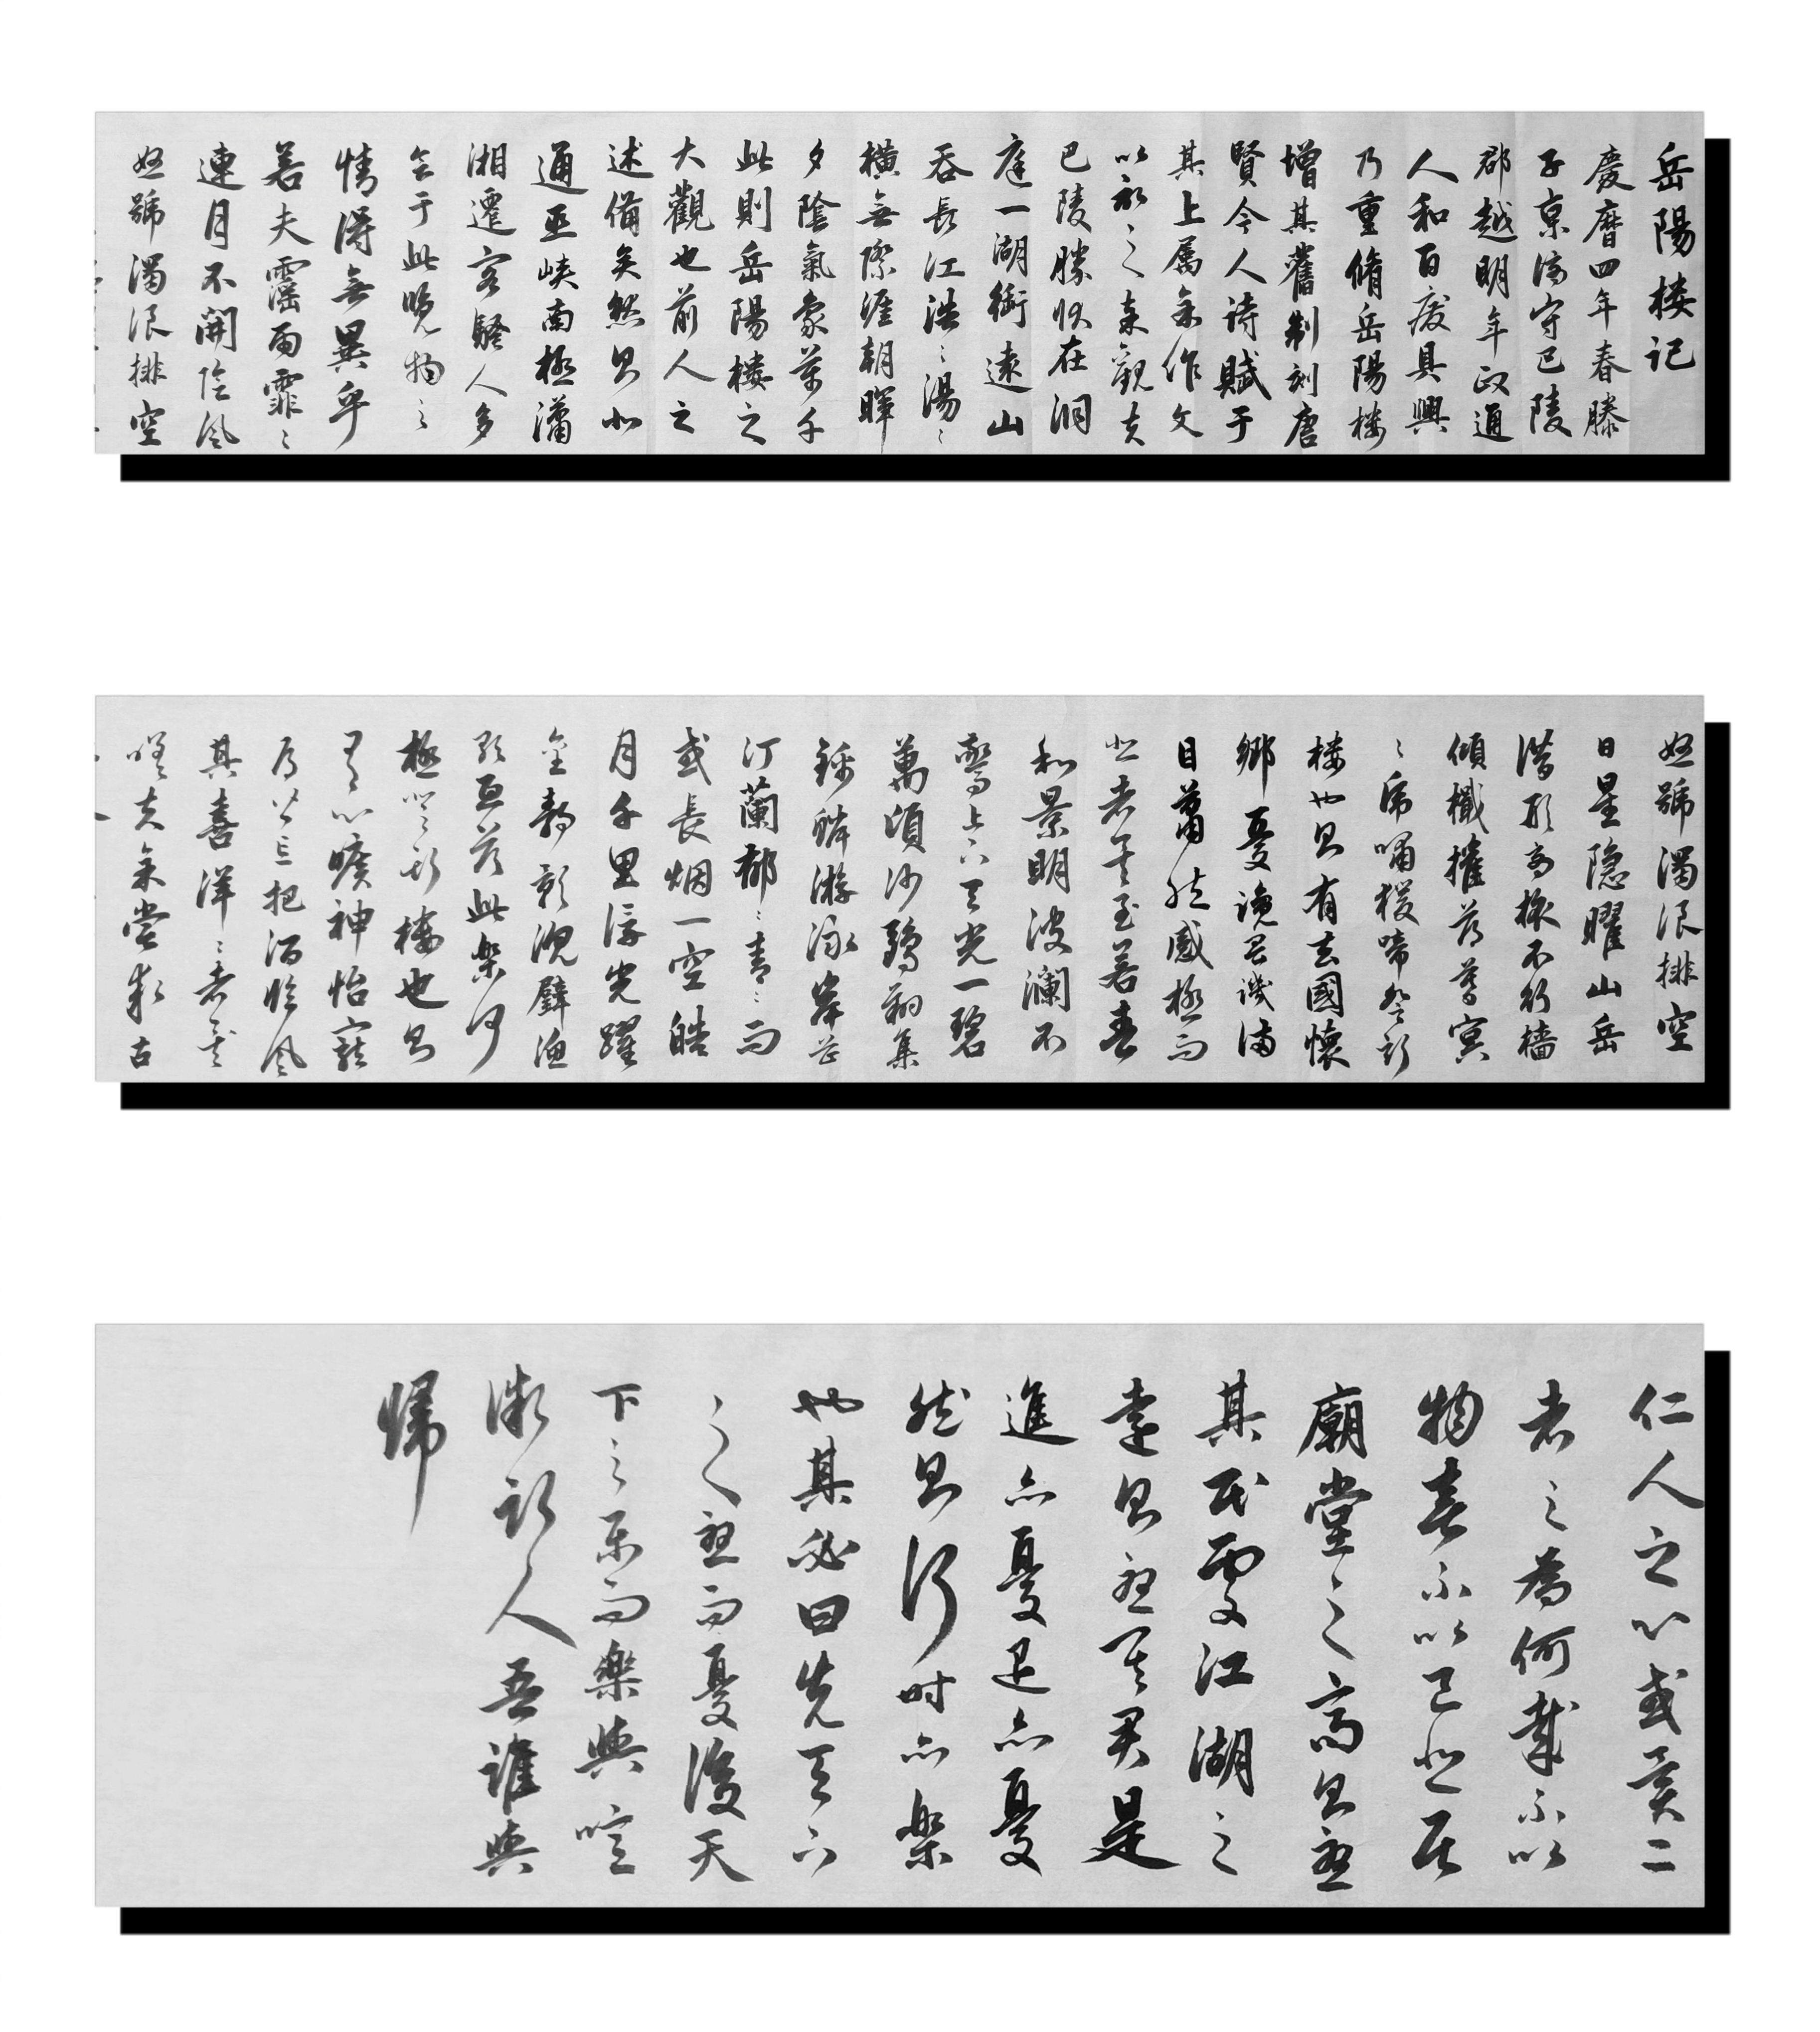 岳陽楼记
慶曆四年春滕
子京谪守巴陵
郡越明年政通
人和百废具興
乃重脩岳陽楼
增其舊制刻唐
賢今人诗賦于
其上属余作文
以之余觀夫
巴陵勝状在洞
庭一湖銜遠山
吞長江浩〻湯〻
横無際涯朝暉
夕陰氣象萬千
此則岳陽楼之
大觀也前人之
述備矣然則北
通巫峡南極瀟
湘遷客騷人多
會于此覽物之
情得無異乎
若夫霪雨霏〻
連月不開陰風
怒號濁浪排空
怒號濁浪排空
日星隐曜山岳
潜形商旅不行檣
傾檝摧薄暮冥
〻虎嘯猨啼登斯
楼也則有去國懷
鄉憂讒畏譏满
目萧然感極而
悲者矣至若春
和景明波瀾不
驚上下天光一碧
萬頃沙鷗翔集
錦鱗游泳岸芷
汀蘭郁〻青〻而
或長烟一空皓
月千里浮光躍
金静影沉璧渔
歌互答此樂何
極登斯樓也則
有心曠神怡寵
辱皆忘把酒臨風
其喜洋〻者矣
嗟夫余嘗求古
仁人之心或異二
者之為何哉不以
物喜不以己悲居
廟堂之高則憂
其民處江湖之
遠則憂其君是
進亦憂退亦憂
然則何时亦樂
也其必曰先天下
之憂而憂後天
下之乐而樂與噫
微斯人吾誰與
歸